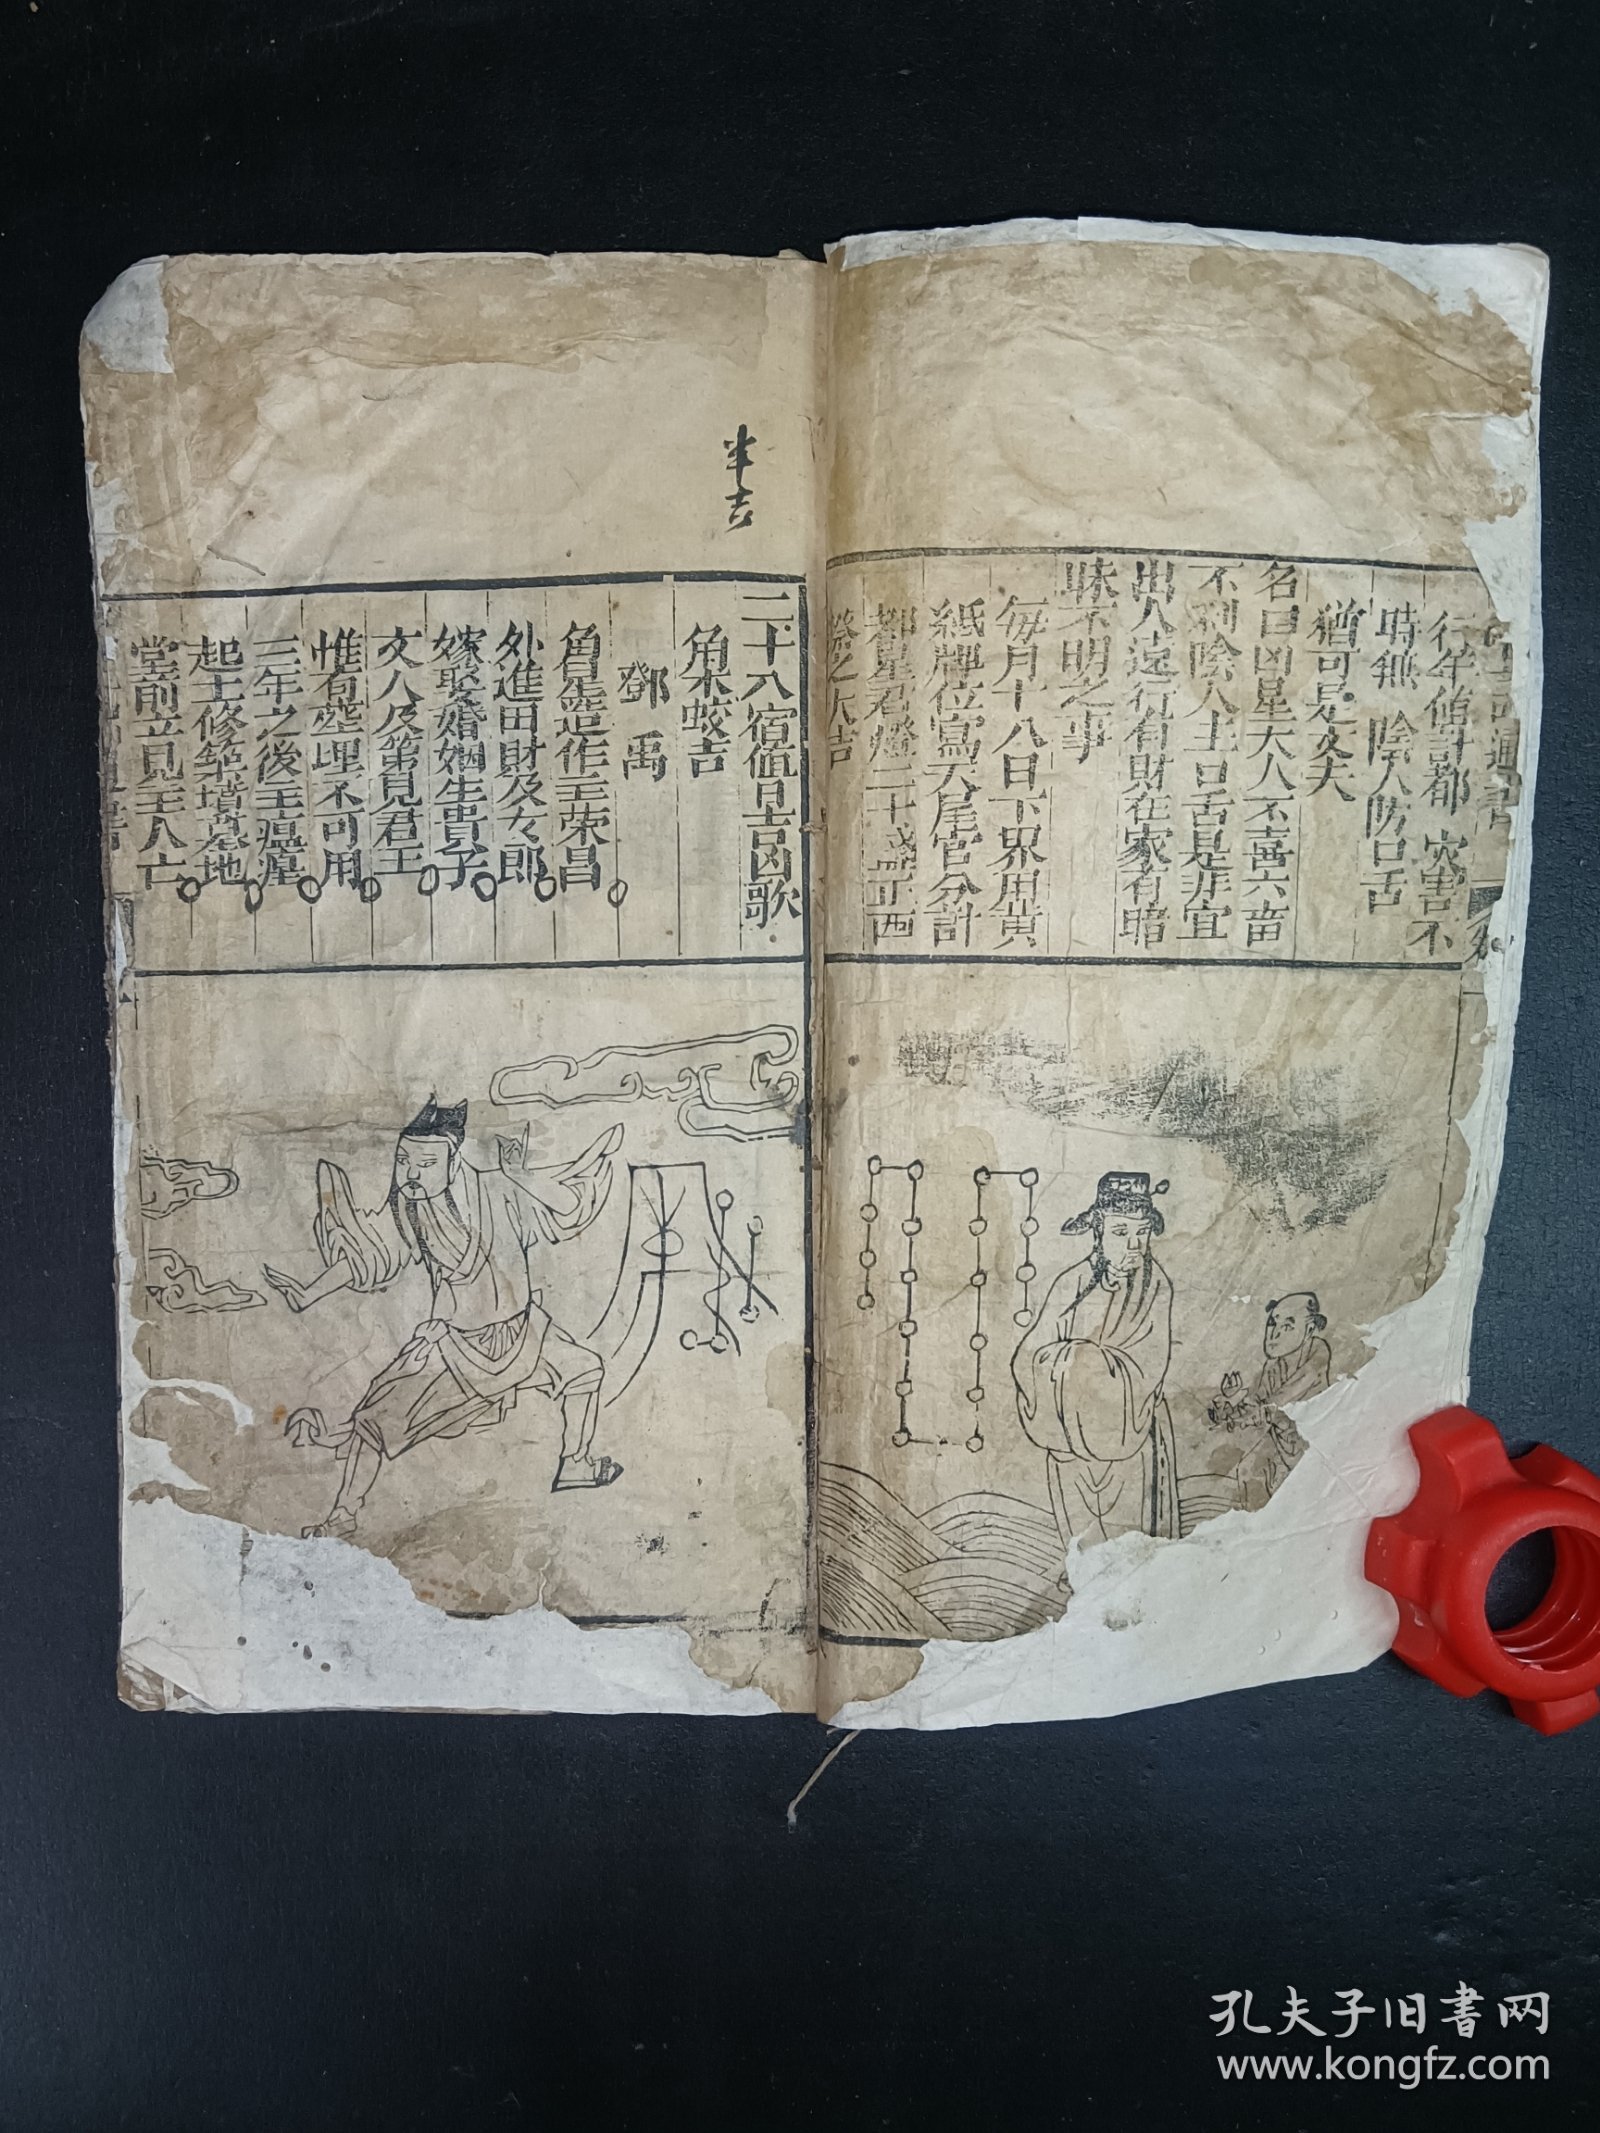 行年值計都 災害不
時無 陰人防口舌
猶可是丈夫
名曰凶星大人不喜六畜
不利陰人主口舌是非宜
出入遠行有財在家有暗
昧不明之事
每月十八日下界用黃
紙牌位寫天尾宮分計
都星君燈二十盞正西
祭之大吉
半吉
二十八宿值日吉凶歌
角木蛟吉
鄧禹
角星造作主荣昌
外進田財及女郎
嫁娶婚姻生貴子
文人及第見君王
惟有塟埋不可用
三年之後主瘟瘽
起土修築墳墓地
堂前立見主人亡
孔夫子旧書网
www.kongfz.com